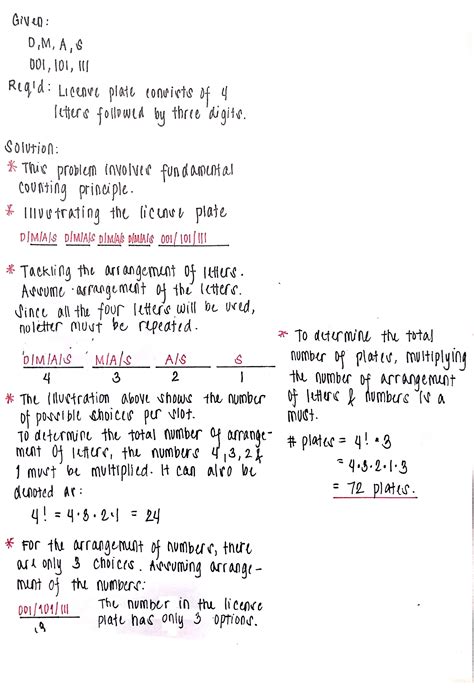 Given:
D, M, A, S
001, 101, 111
Req'd: License plate consists of 4
letters followed by three digits.
Solution:
* This problem involves fundamental
counting principle.
* Illustrating the license plate
D/M/A/S D/M/A/S D/M/A/S D/M/A/S 001/101/111
* Tackling the arrangement of letters.
Assume arrangement of the letters.
Since all the four letters will be used,
no letter must be repeated.
D/M/A/S M/A/S A/S S
4 3 2 1
* The illustration above shows the number
of possible choices per slot.
To determine the total number of arrange-
ment of letters, the numbers 4, 3, 2 &
1 must be multiplied. It can also be
denoted as:
4! = 4·3·2·1 = 24
* For the arrangement of numbers, there
are only 3 choices. Assuming arrange-
ment of the numbers:
001/101/111
The number in the license
plate has only 3 options.
* To determine the total
number of plates, multiplying
the number of arrangement
of letters & numbers is a
must.
# plates = 4! * 3
= 4·3·2·1·3
= 72 plates.